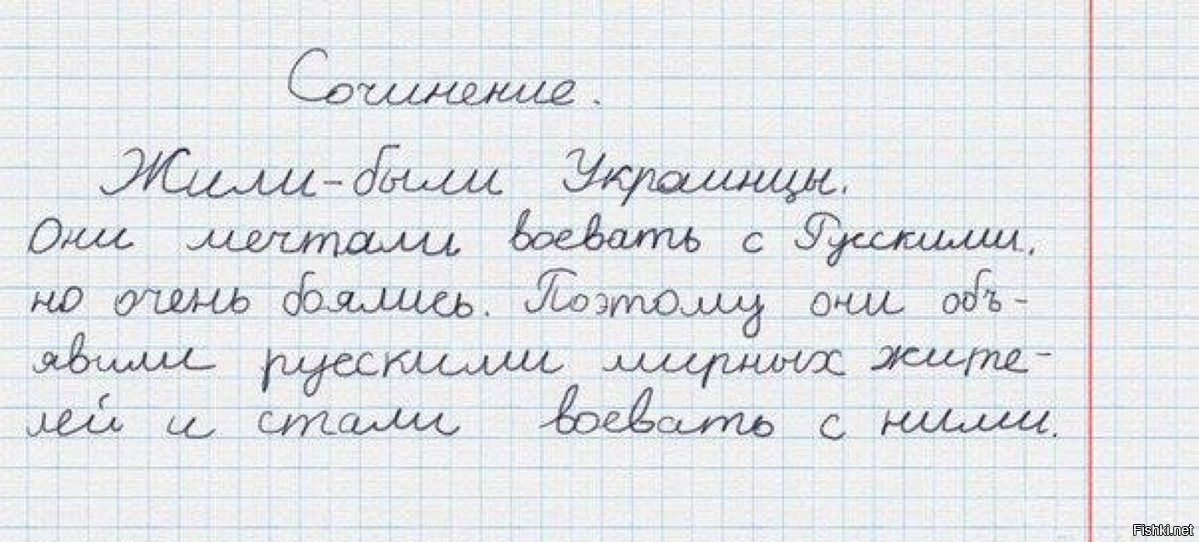 Сочинение.
Жили-были Украинцы.
Они мечтали воевать с Русскими,
но очень боялись. Поэтому они объ-
явили русскими мирных жите-
лей и стали воевать с ними.
Fishki.net